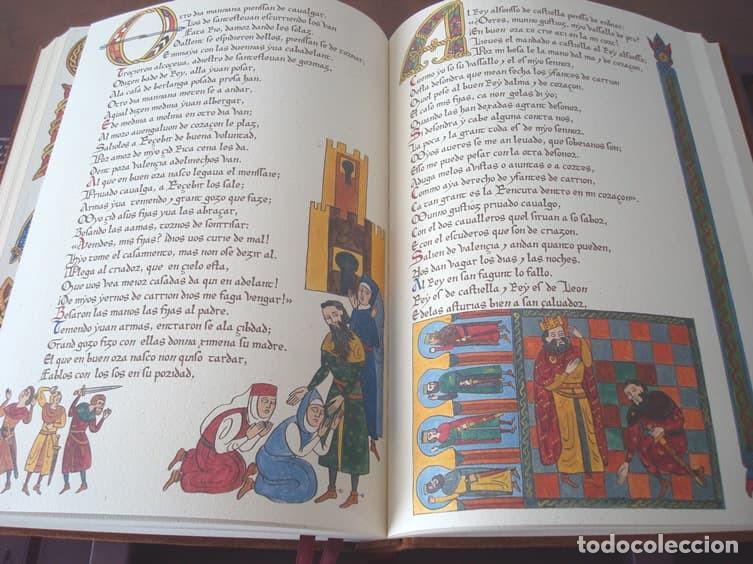 Otro dia mannana pienssan de cavalgar,
Los de santestevan escurriendo los van
Fata Rio damor dando les solaz,
Dallent se espidieron dellos, pienssan se de tornar,
E minaya con las duennas yua cabadelant.
Troçieron alcoçeua, adiestro de santestevan de gormaz,
Odizen bado de Rey, alla yuan posar,
Ala casa de berlanga posada presa han.
Otro dia mannana meten se a andar,
Aqual dizen medina yuan albergar,
E de medina a molina en otro dia van;
Al moro auengaluon de coraçon le plaz,
Saliolos a Reçebir de buena voluntad,
Por amor de myo çid Rica cena les da.
Dent para valençia adelinechos van.
Al que en buen ora nasco legaua el menssaie;
Priuado caualga, a Reçebir los sale;
Armas yua teniendo y grant gozo que faze;
Myo çid asus fijas yua las abraçar,
Besando las aamas, tornos de sonrrisar:
«Venides, mis fijas? Dios vos curie de mal!
Hyo tome el casamiento, mas non ose dezir al.
Plega al criador, que en çielo esta,
Que vos vea meior casadas da qui en adelant!
¡De myos yernos de carrion dios me faga vengar!»
Besaron las manos las fijas al padre.
Teniendo yuan armas, entraron se ala çibdad;
Grand gozo fizo con ellas donna ximena su madre.
El que en buen ora nasco non quiso tardar,
Fablos con los sos en su poridad,
Al Rey alfonsso de castiella pensso de enbiar:
«¿Oeres, munno gustioz, myo vassallo de pro?
En buen ora te crie ati en la mi cort!
Lieues el mandado a castiella al Rey alfonsso;
Por mi besa le la mano dalma y de coraçon,
Cuemo yo so su vassallo, y el es myo sennor,
Desta desondra que mean fecha los yfantes de carrion
Quel pese al buen Rey dalma y de coraçon.
El caso mis fijas, ca non gelas di yo;
Quando las han dexadas agrant desonor,
Si desondra y cabe alguna contra nos,
La poca y la grant toda es de myo sennor.
Myos aueres se me an leuado, que sobeianos son;
Esso me puede pesar con la otra desonor.
Aduga melos avistas o aiuntas o a cortes,
Commo aya derecho de yfantes de carrion,
Ca tan grant es la Rencura dentro en mi coraçon».
Munno gustioz priuado caualgo,
Con el dos caualleros quel siruan a so sabor,
E con el escuderos que son de criazon.
Salien de valençia y andan quanto pueden,
Nos dan vagar los dias y las noches.
Al Rey en san fagunt lo fallo.
Rey es de castiella y Rey es de Leon
E delas asturias bien a san çaluador,
todocoleccion